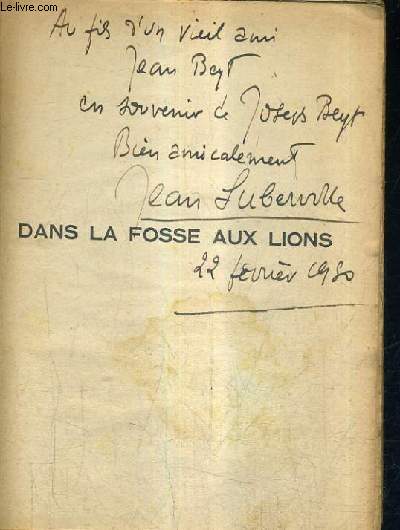 Le-livre.com
Au fils d'un vieil ami
Jean Beyt
en souvenir de Joseph Beyt
Bien amicalement
Jean Suberville
DANS LA FOSSE AUX LIONS
22 février 1950